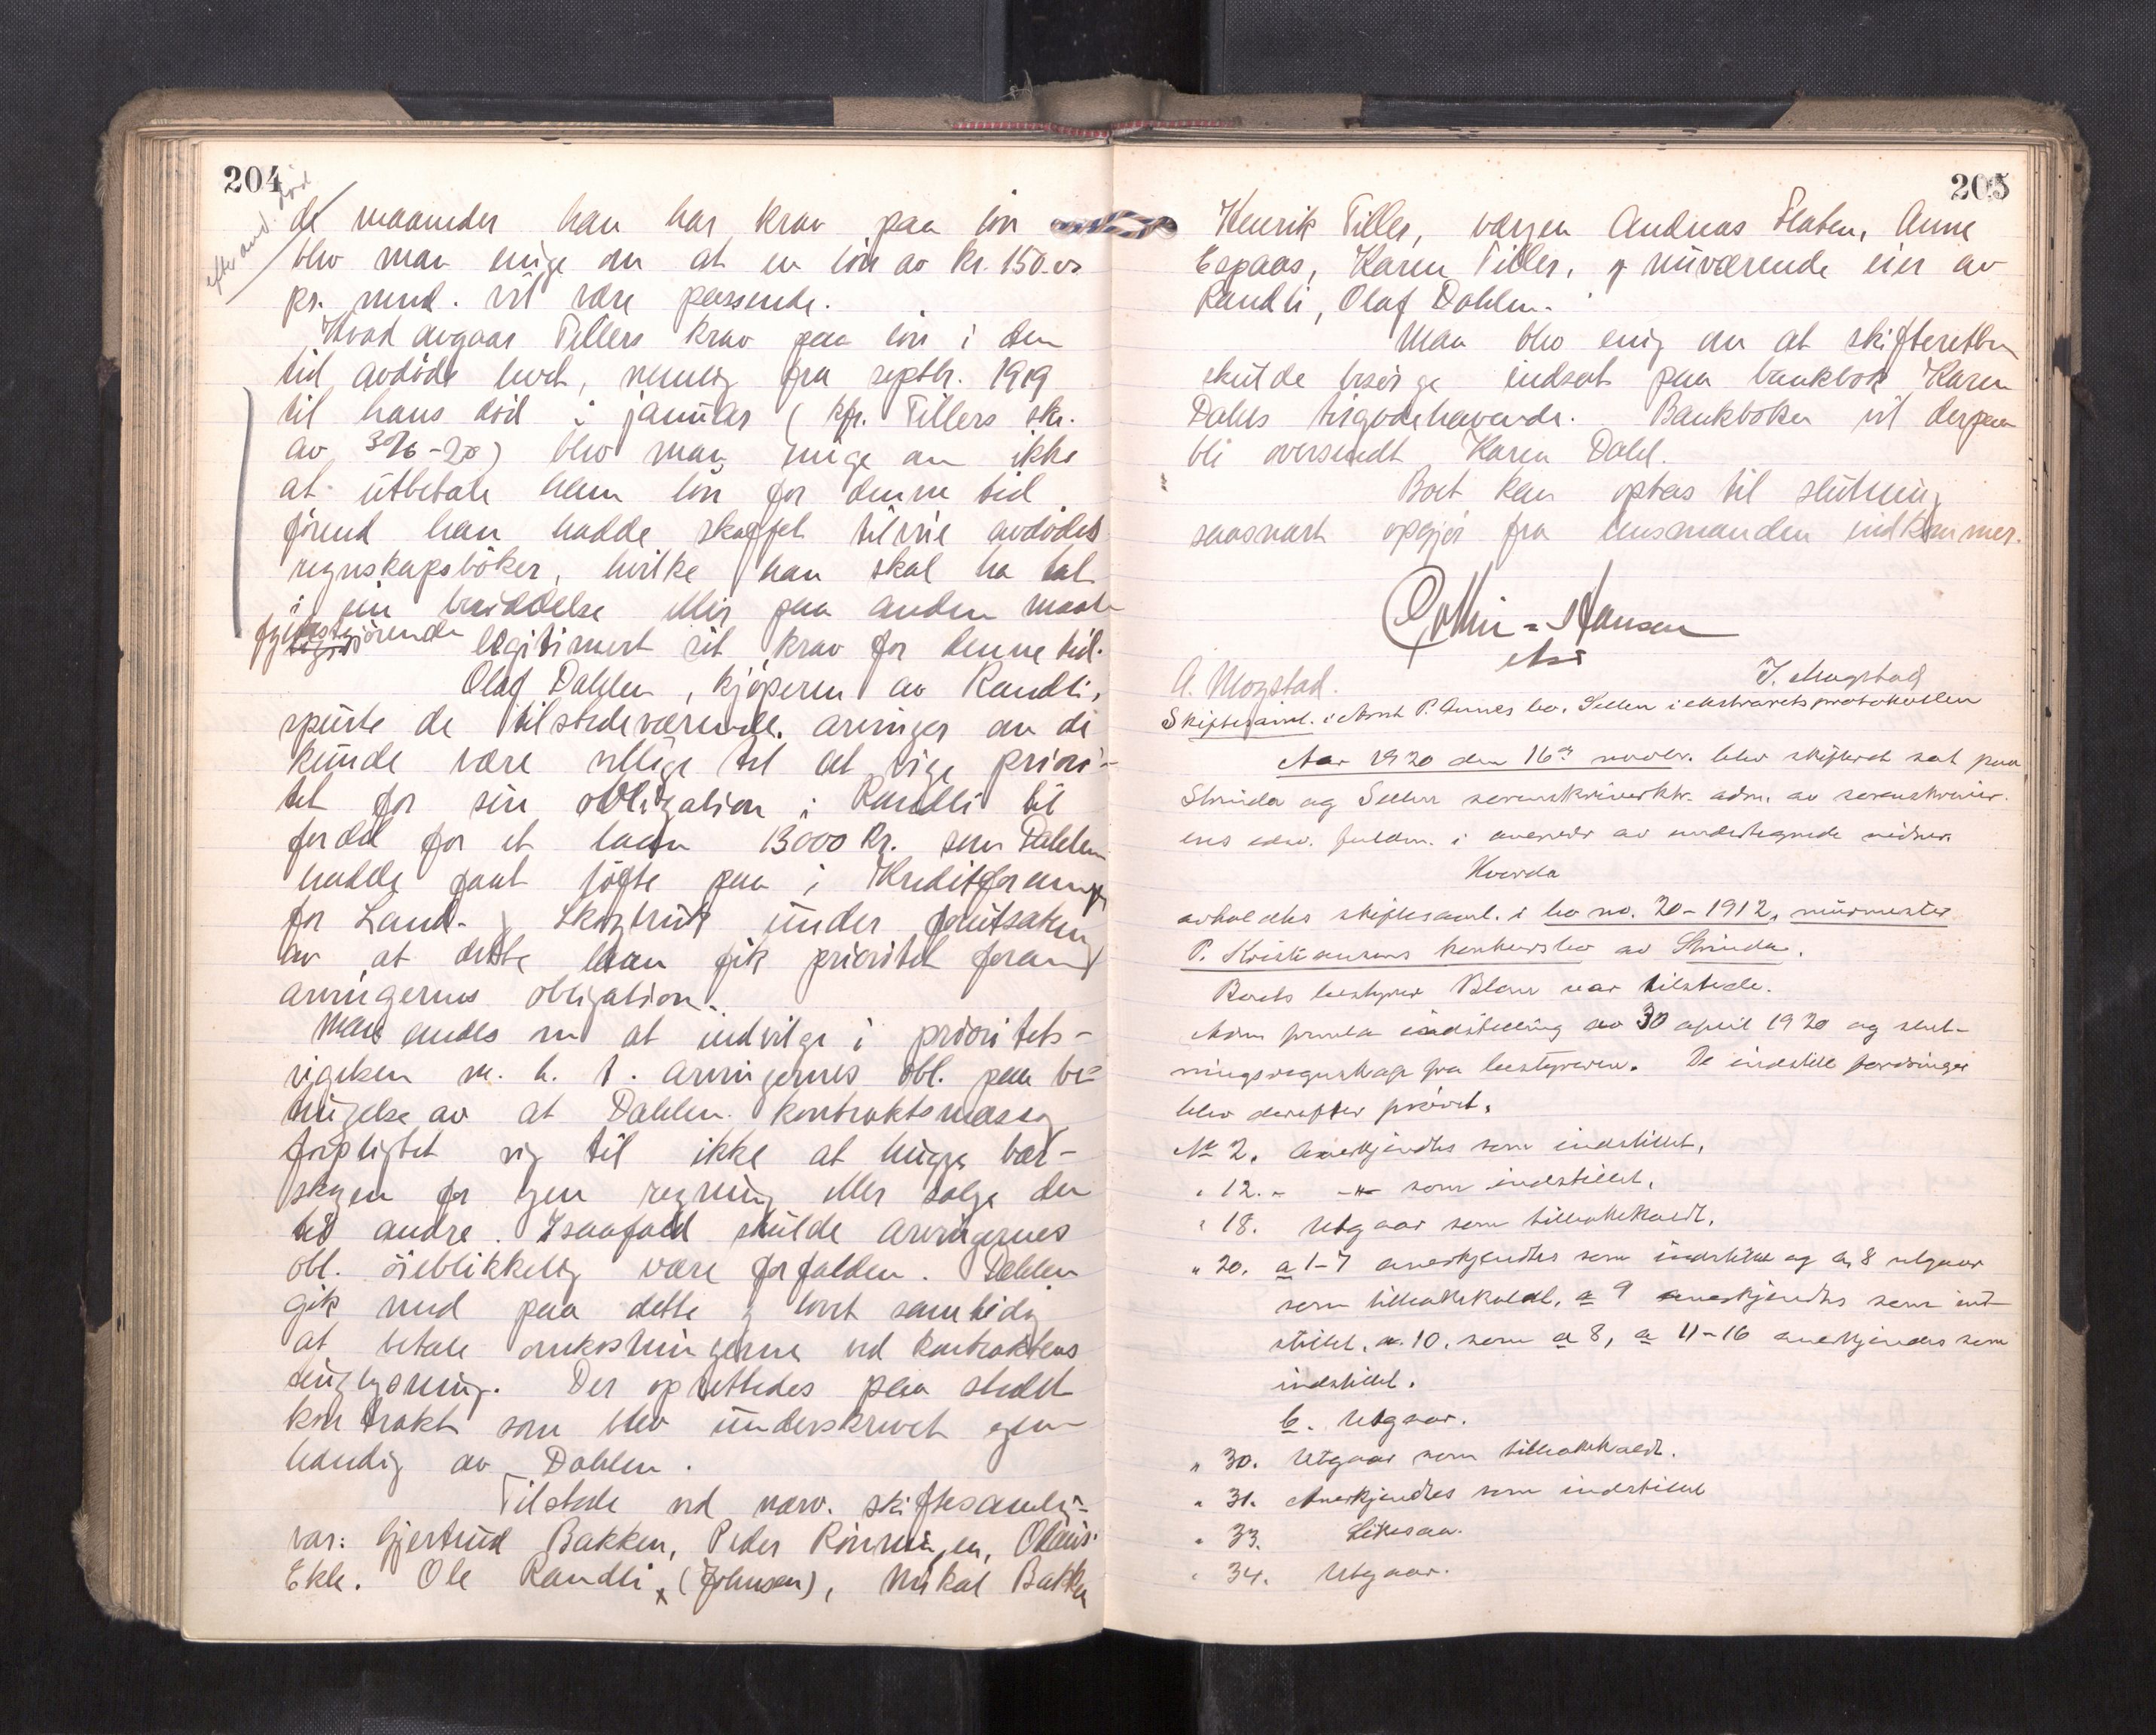 204
efter avd. död
de maaneder han har krav paa lön
blev man enige om at en lön av kr. 150.00
pr. mnd. vil være passende.
Hvad avgaar Tillers krav paa lön i den
tid avdöde levet, nemlig fra septbr. 1919
til hans död i januar (kfr. Tillers skr.
av 3/6-20) blev man enige om ikke
at utbetale ham lön for denne tid
förend han hadde skaffet tilveie avdödes
regnskapsböker, hvilke han skal ha tat
i sin besiddelse eller paa anden maate
fyldestgjörende legitimert sit krav for denne tid.
Olaf Dahlen, kjöperen av Randli,
spurte de tilstedeværende arvinger om de
kunde være villige til at vige priori-
tet for sin obligation i Randli til
fordel for et laan 13000 kr. som Dahlen
hadde faat löfte paa i Kreditforening
for Land- og Skogbruk under forutsætning
av at dette laan fik prioritet foran
arvingernes obligation.
Man enedes om at indvilge i prioritets-
vigelsen m. h. t. arvingernes obl. paa be-
tingelse av at Dahlen kontraktsmæssig
forpligtet sig til ikke at hugge bar-
skogen for egen regning eller sælge den
til andre. I saafald skulde arvingernes
obl. öieblikkelig være forfalden. Dahlen
gik med paa dette og lovet samtidig
at betale omkostningerne ved kontraktens
tinglysning. Der oprettedes paa stedet
kontrakt som blev underskrevet egen-
hændig av Dahlen.
Tilstede ved nærv. skiftesamling
var: Gjertrud Bakken, Peder Rönningen, Olaus
Ekle. Ole Randli (Johnsen), Mikal Bakken
205
Henrik Tiller, værgen Andreas Flaten, Anne
Espaas, Karen Tiller, og nuværende eier av
Randli, Olaf Dahlen.
Man blev enig om at skifteretten
skulde besörge indsat paa bankbok Karen
Dahls tilgodehavende. Bankboken vil derpaa
bli oversendt Karen Dahl.
Boet kan optas til slutning
saasnart opgjör fra lensmanden indkommer.
Collin-Hansen
A. Mogstad. J. Mogstad
Skiftesaml. i Arnt P. Aunes bo, Selbu i ekstraretsprotokollen
Aar 1920 den 16de novbr. blev skifteret sat paa
Strinda og Selbu sorenskriverktr. adm. av sorenskriver-
ens edsv. fuldm. i overvær av undertegnede vidner.
Hvorda
avholdtes skiftesaml. i bo no. 20-1912, murmester
P. Kristiansens konkursbo av Strinda.
Boets bestyrer Blom var tilstede.
Adm fremla indstilling av 30 april 1920 og slut-
ningsregnskap fra bestyreren. De indstillte fordringer
blev derefter prövet.
No 2. Anerkjendtes som indstillet.
" 12. - -"- som indstillet.
" 18. Utgaar som tilbakekaldt.
" 20. a 1-7 anerkjendtes som indstillet og a 8 utgaar
som tilbakekaldt, a 9 anerkjendtes som ind-
stillet, a. 10. som a 8, a 11-16 anerkjendes som
indstillet.
b. Utgaar.
" 30. Utgaar som tilbakekaldt.
" 31. Anerkjendtes som indstillet
" 33. Likesaa.
" 34. Utgaar.